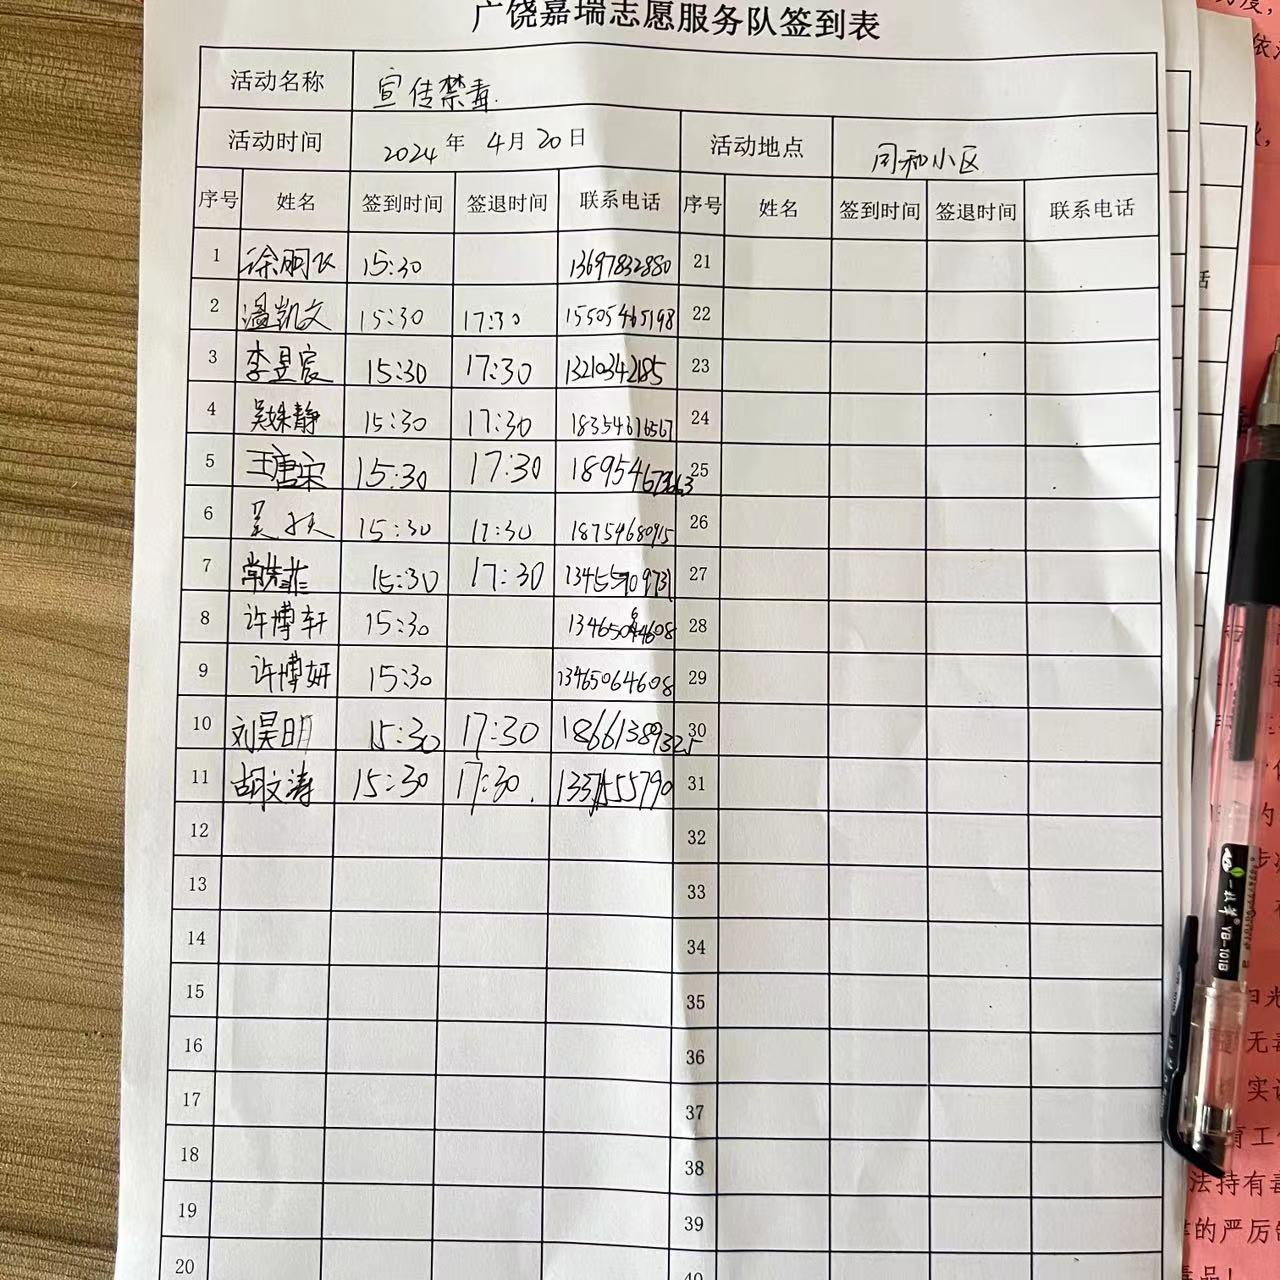 广饶嘉瑞志愿服务队签到表
活动名称 宣传禁毒
活动时间 2024年 4月20日 活动地点 同和小区
序号 姓名 签到时间 签退时间 联系电话 序号 姓名 签到时间 签退时间 联系电话
1 15:30 13697832880 21
2 温凯文 15:30 17:30 15505465198 22
3 李昱宸 15:30 17:30 13210342185 23
4 吴姝静 15:30 17:30 18354676567 24
5 王唐宋 15:30 17:30 25
6 吴 15:30 17:30 18754680915 26
7 15:30 17:30 27
8 许博轩 15:30 28
9 许博妍 15:30 13465064608 29
10 刘昊明 15:30 17:30 18661389325 30
11 胡文涛 15:30 17:30. 31
12 32
13 33
14 34
15 35
16 36
17 37
18 38
19 39
20 40
话
YB-101B
日光
无毒
实
育工
法持有毒
的严厉
毒品!